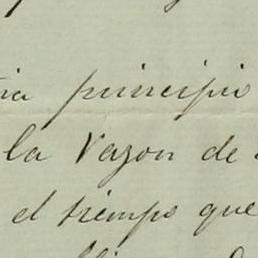 principio
la Razon de
el tiempo que